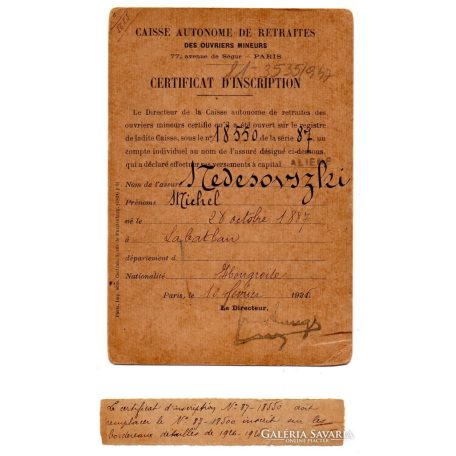 CAISSE AUTONOME DE RETRAITES
DES OUVRIERS MINEURS
77, avenue de Ségur — PARIS
CERTIFICAT D'INSCRIPTION
Le Directeur de la Caisse autonome de retraites des
ouvriers mineurs certifie qu'il a été ouvert sur le registre
de ladite Caisse, sous le n° 18550 de la série 87, un
compte individuel au nom de l'assuré désigné ci-dessous,
qui a déclaré effectuer ses versements à capital ALIÉNÉ
Nom de l'assuré Nedesovszki
Prénoms Michel
né le 28 octobre 1887
à Labatlan
département d
Nationalité Hongroise
Paris, le 12 février 1926
Le Directeur,
Le certificat d'inscription N° 87-18550 doit
remplacer le N° 87-18500 inscrit sur les
bordereaux détaillés de 1924-
GALÉRIA SAVARIA
ONLINE PIACTÉR